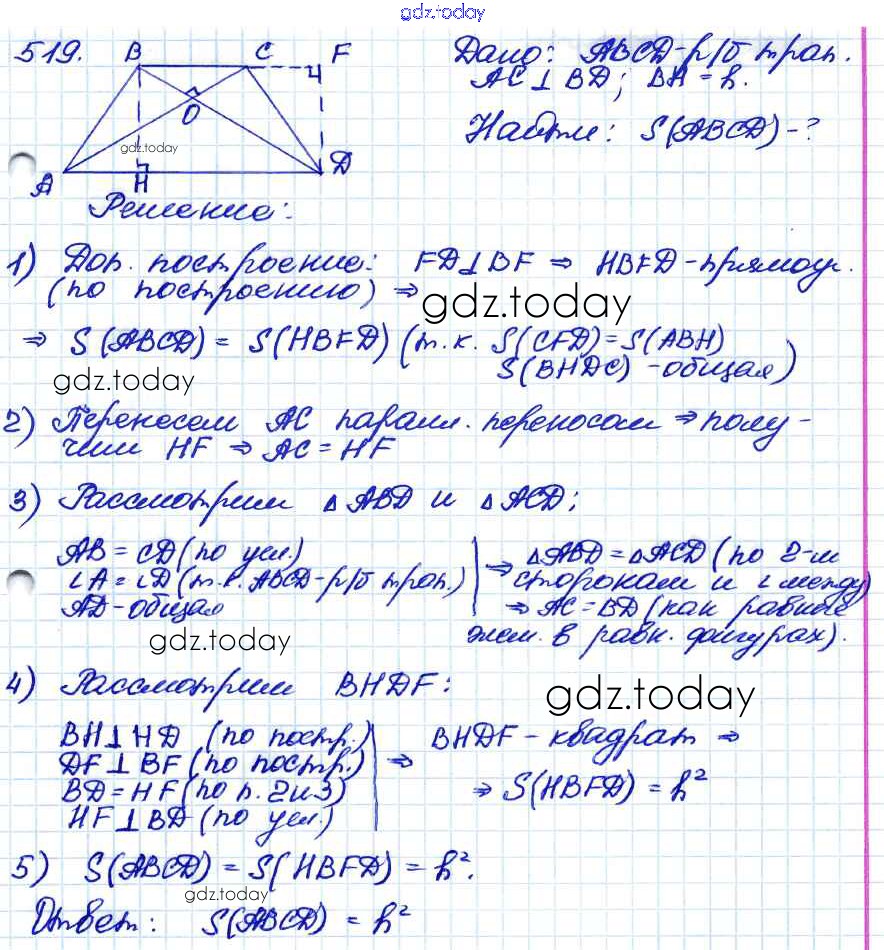 gdz.today
519.
B C F
O
gdz.today
A H D
Дано: ABCD-р/б трап.
AC⊥BD; BH=h.
Найти: S(ABCD)-?
Решение:
1) Доп. построение: FD⊥BF ⇒ HBFD-прямоуг.
(по построению) ⇒
gdz.today
⇒ S(ABCD) = S(HBFD) (т.к. S(CFD)=S(ABH)
S(BHDC)-общая)
gdz.today
2) Перенесем AC паралл. переносом ⇒ полу-
чим HF ⇒ AC=HF
3) Рассмотрим △ABD и △ACD;
AB = CD (по усл.)
∠A = ∠D (т.к. ABCD-р/б трап.)
AD-общая
⇒ △ABD=△ACD (по 2-м
сторонам и ∠ между)
⇒ AC=BD (как равные
элем. в равн. фигурах).
gdz.today
4) Рассмотрим BHDF:
gdz.today
BH⊥HD (по постр.)
DF⊥BF (по постр.)
BD=HF (по п. 2 и 3)
HF⊥BD (по усл.)
⇒ BHDF-квадрат ⇒
⇒ S(HBFD) = h²
5) S(ABCD) = S(HBFD) = h².
gdz.today
Ответ: S(ABCD) = h²